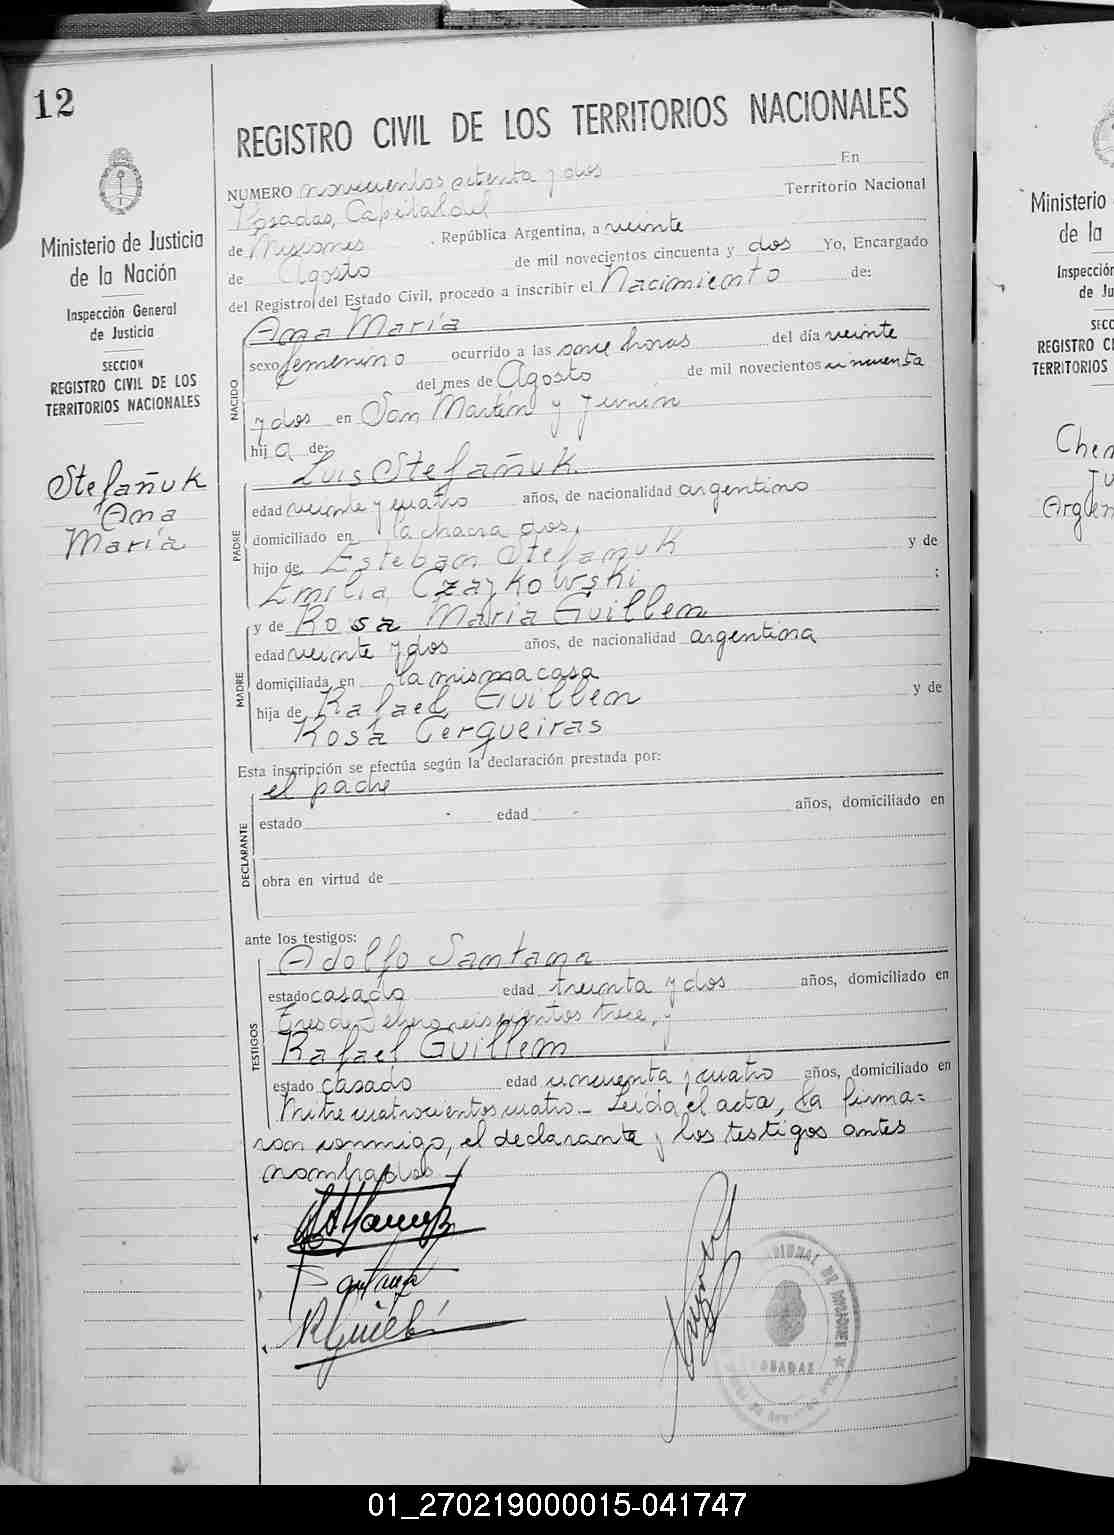 12
REGISTRO CIVIL DE LOS TERRITORIOS NACIONALES
Ministerio de Justicia
de la Nación
Inspección General
de Justicia
SECCION
REGISTRO CIVIL DE LOS
TERRITORIOS NACIONALES
Stefañuk
Ana
María
NUMERO novecientos y dos En
Posadas, Capital del Territorio Nacional
de Misiones . República Argentina, a veinte
de Agosto de mil novecientos cincuenta y dos Yo, Encargado
del Registro del Estado Civil, procedo a inscribir el Nacimiento de:
NACIDO
Ana María
sexo femenino ocurrido a las once horas del día veinte
del mes de Agosto de mil novecientos cincuenta
y dos en San Martín y Junín
hij a de:
PADRE
Luis Stefañuk
edad veinte y cuatro años, de nacionalidad argentino
domiciliado en la chacra dos,
hijo de Esteban Stefañuk y de
Emilia Czajkowski :
MADRE
y de Rosa María Guillem
edad veinte y dos años, de nacionalidad argentina
domiciliada en la misma casa
hija de Rafael Guillem y de
Rosa Cerqueiras
Esta inscripción se efectúa según la declaración prestada por:
DECLARANTE
el padre
estado - edad - años, domiciliado en
obra en virtud de
ante los testigos:
TESTIGOS
Adolfo Santana
estado casado edad treinta y dos años, domiciliado en
Tres de Febrero seiscientos trece, y
Rafael Guillem
estado casado edad cincuenta y cuatro años, domiciliado en
Mitre cuatrocientos cuatro.- Leída el acta, la firma=
ron conmigo, el declarante y los testigos antes
nombrados
RGuillé
DE MISIONES
POSADAS
Ministerio
de la
Inspección
de Ju
SECC
REGISTRO CI
TERRITORIOS
Ju
Argen
01_270219000015-041747